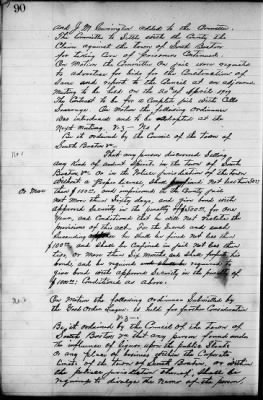 90
and J M Carrington added to the Committee.
The Committee to Settle with the County the
Claim against the town of South Boston
for taking Care of Prisoners Continued.
On Motion the Committee on Jail were requested
to advertise for bids for the Construction of
Same and report to the Council at an adjourned
Meeting to be held on the 20" of April 1909
The Contract to be for a Complete jail with Cells
Sewerage. On Motion the following ordinances
was introduced and to be adopted at the
Next Meeting. Viz - No 1
Be it ordained by the Council of the town of
South Boston Va.
No 1
That any person discovered Selling
any Kind of ardent Spirits, in the town of South
Boston Va. or in the Police jurisdiction of the town
without a proper license, shall be fined Not less than
Or More
than $100, and confined in the County jail
not More than thirty days, and give bond with
approved Security in the penalty of $500.00 for One
Year, and Conditioned that he will not violate the
provisions of this act. For the second and each
Succeeding offence he shall be fined Not less than
$100.00 and Shall be Confined in jail Not less than
ten, or More than Six Months and shall forfeit his
bond, and be required to
give bond with approved Security in the penalty of
$1000.00 Conditioned as above.
No 2
On Motion the following Ordinance Submitted by
the Good Order League is held for further Consideration
Viz - 2
Be it ordained by the Council of the Town of
South Boston Va that any person found under
the influence of liquor upon the public Streets
or any place of business within the Corporate
Limits of the town of South Boston, or within
the police jurisdiction thereof, Shall be
required to divulge the Name of the person,